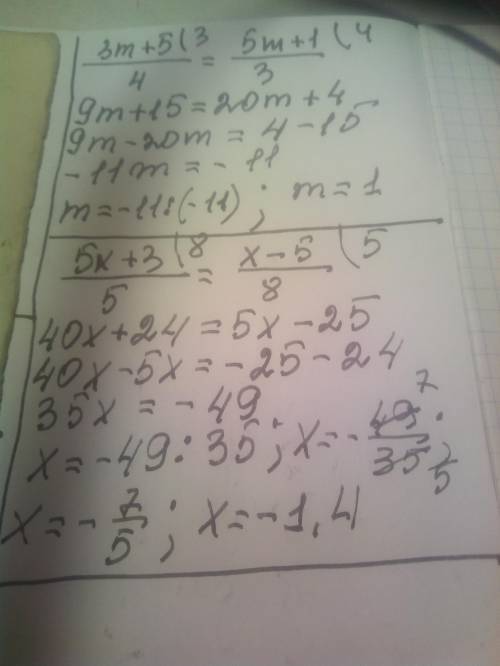 (3m+5)/4 (3 = (5m+1)/3 (4
9m+15=20m+4
9m-20m=4-15
-11m=-11
m=-11:(-11); m=1
(5x+3)/5 (8 = (x-5)/8 (5
40x+24=5x-25
40x-5x=-25-24
35x=-49
x=-49:35; x=-49/35 7 5;
x=-7/5; x=-1,4